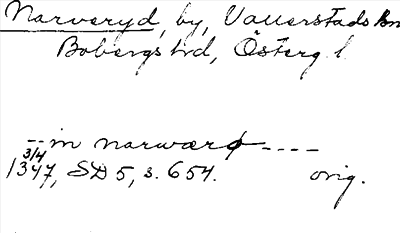 Narveryd, by, Vallerstads sn
Bobergs hd, Österg. l.
-- in narwærø ----
3/4
1347, SD 5, s. 654. orig.